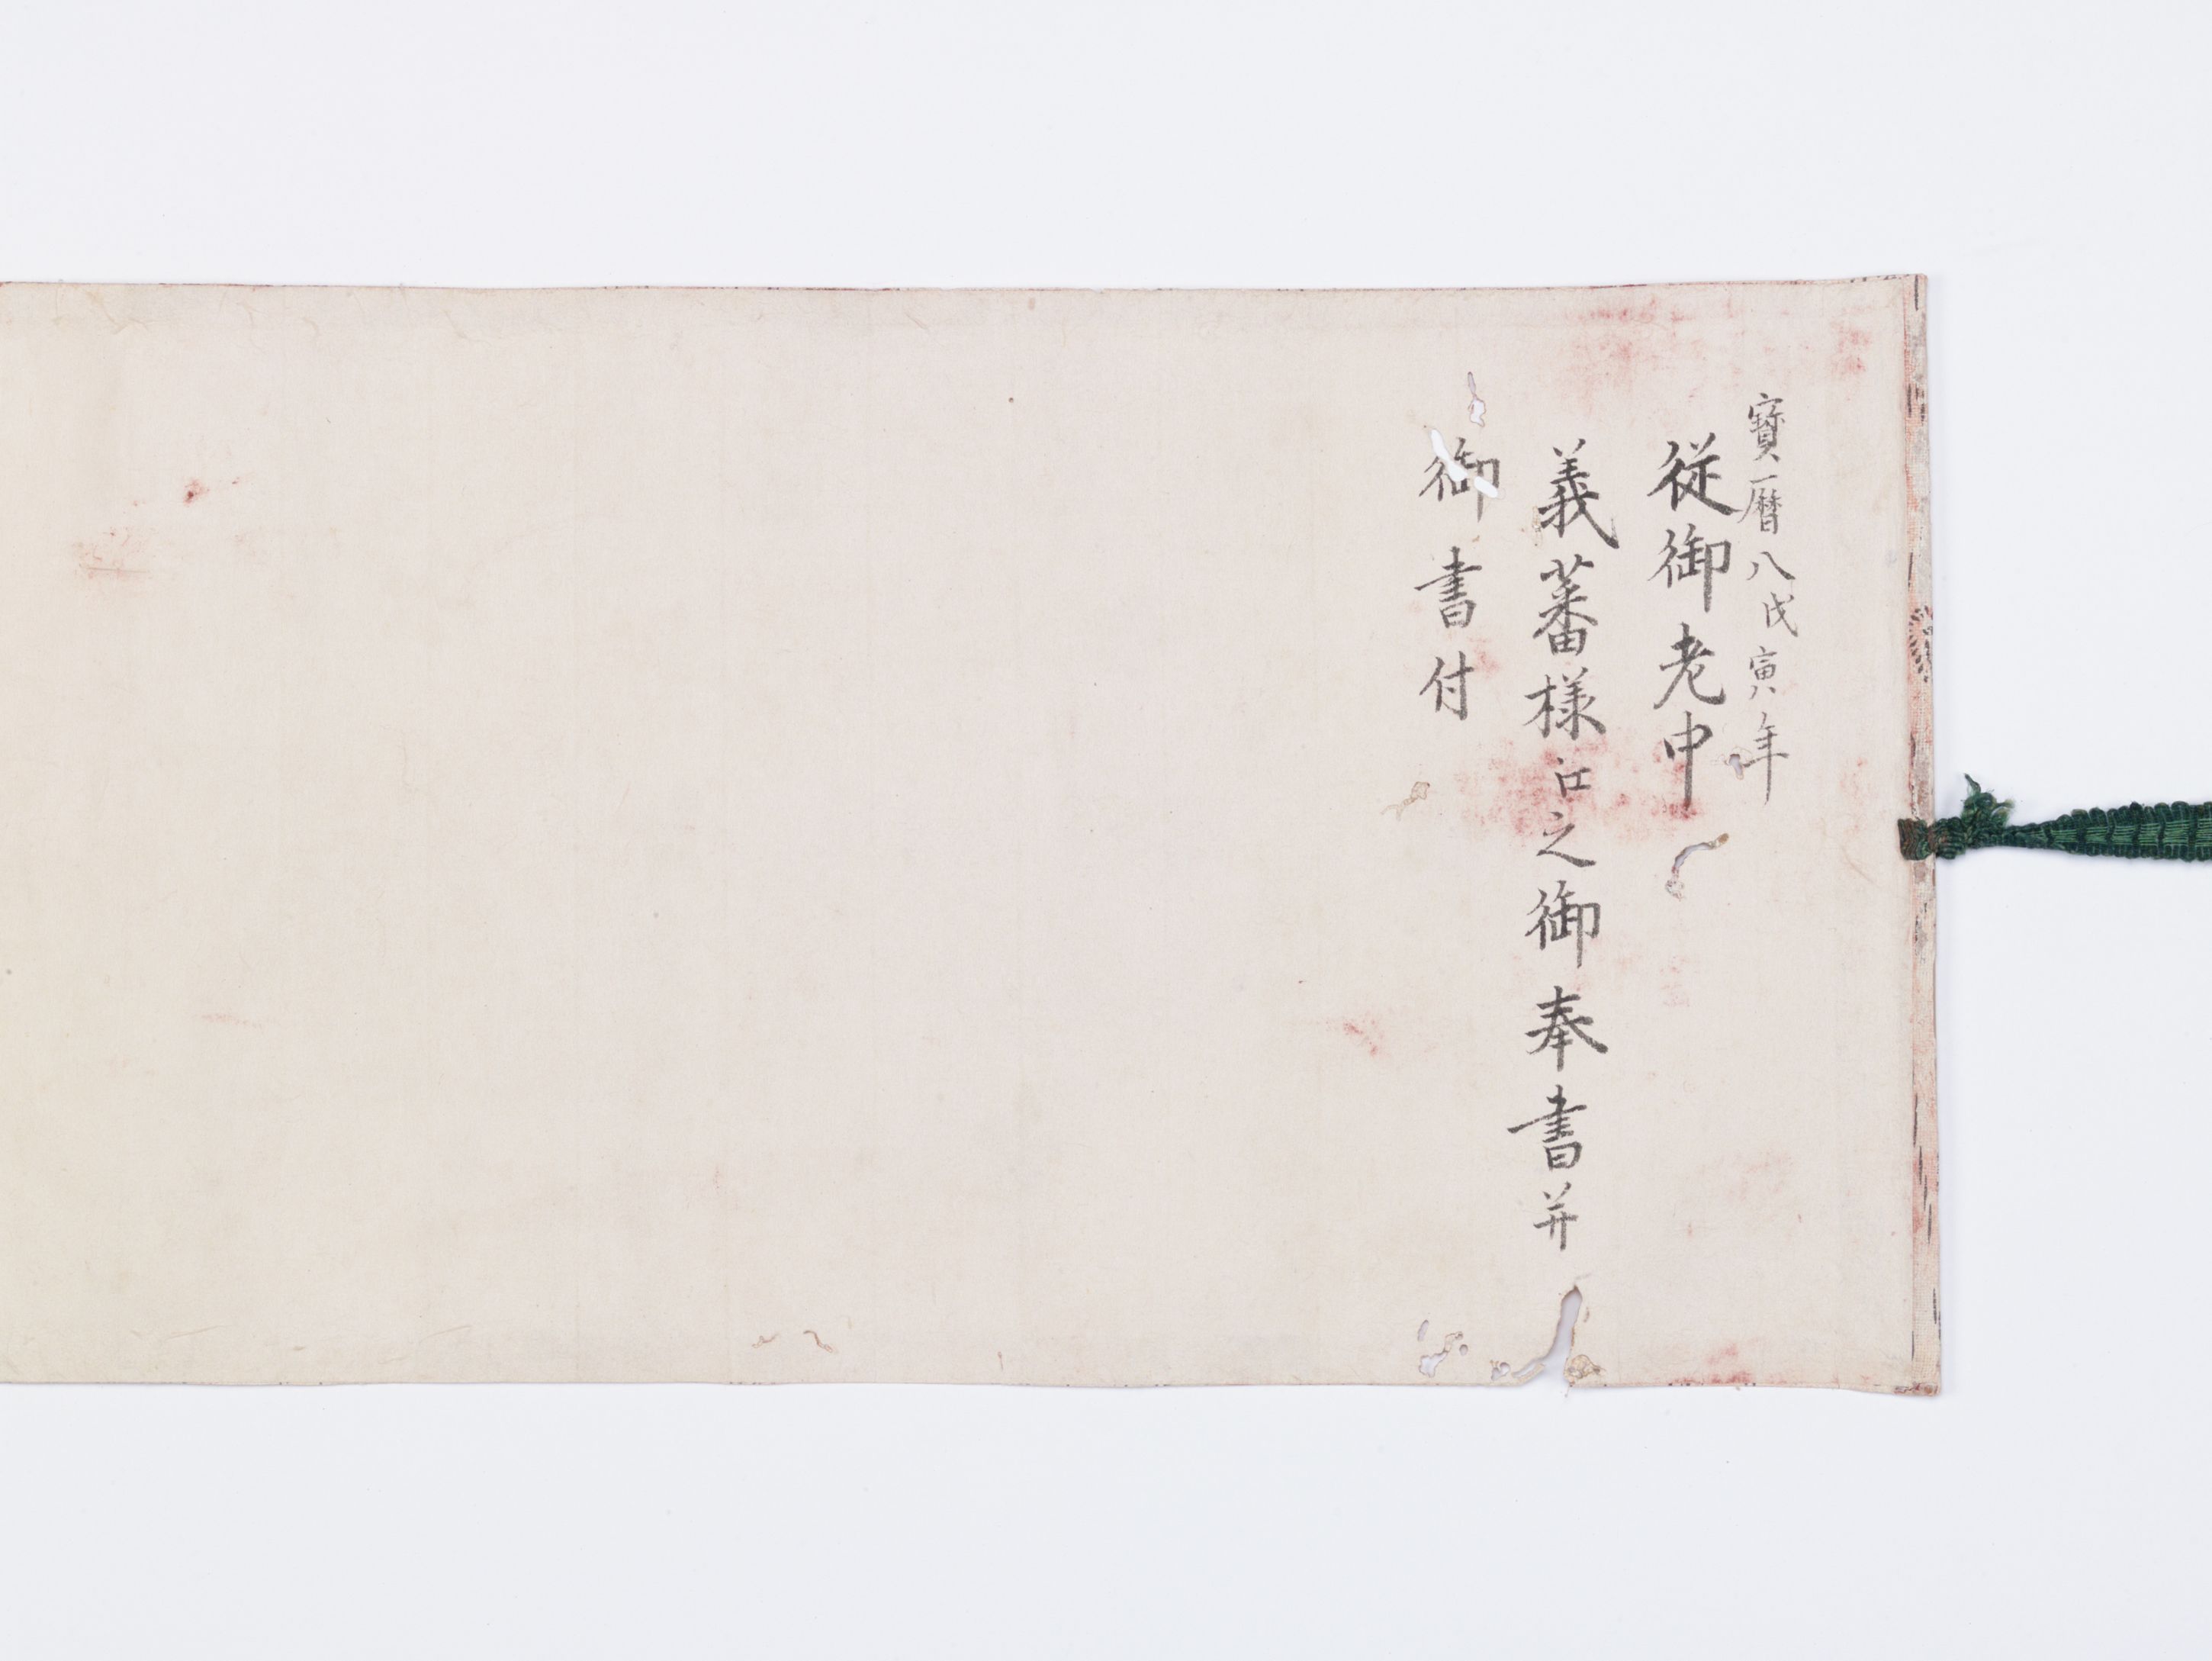 寶暦八戊寅年
従御老中
義蕃様江之御奉書并
御書付